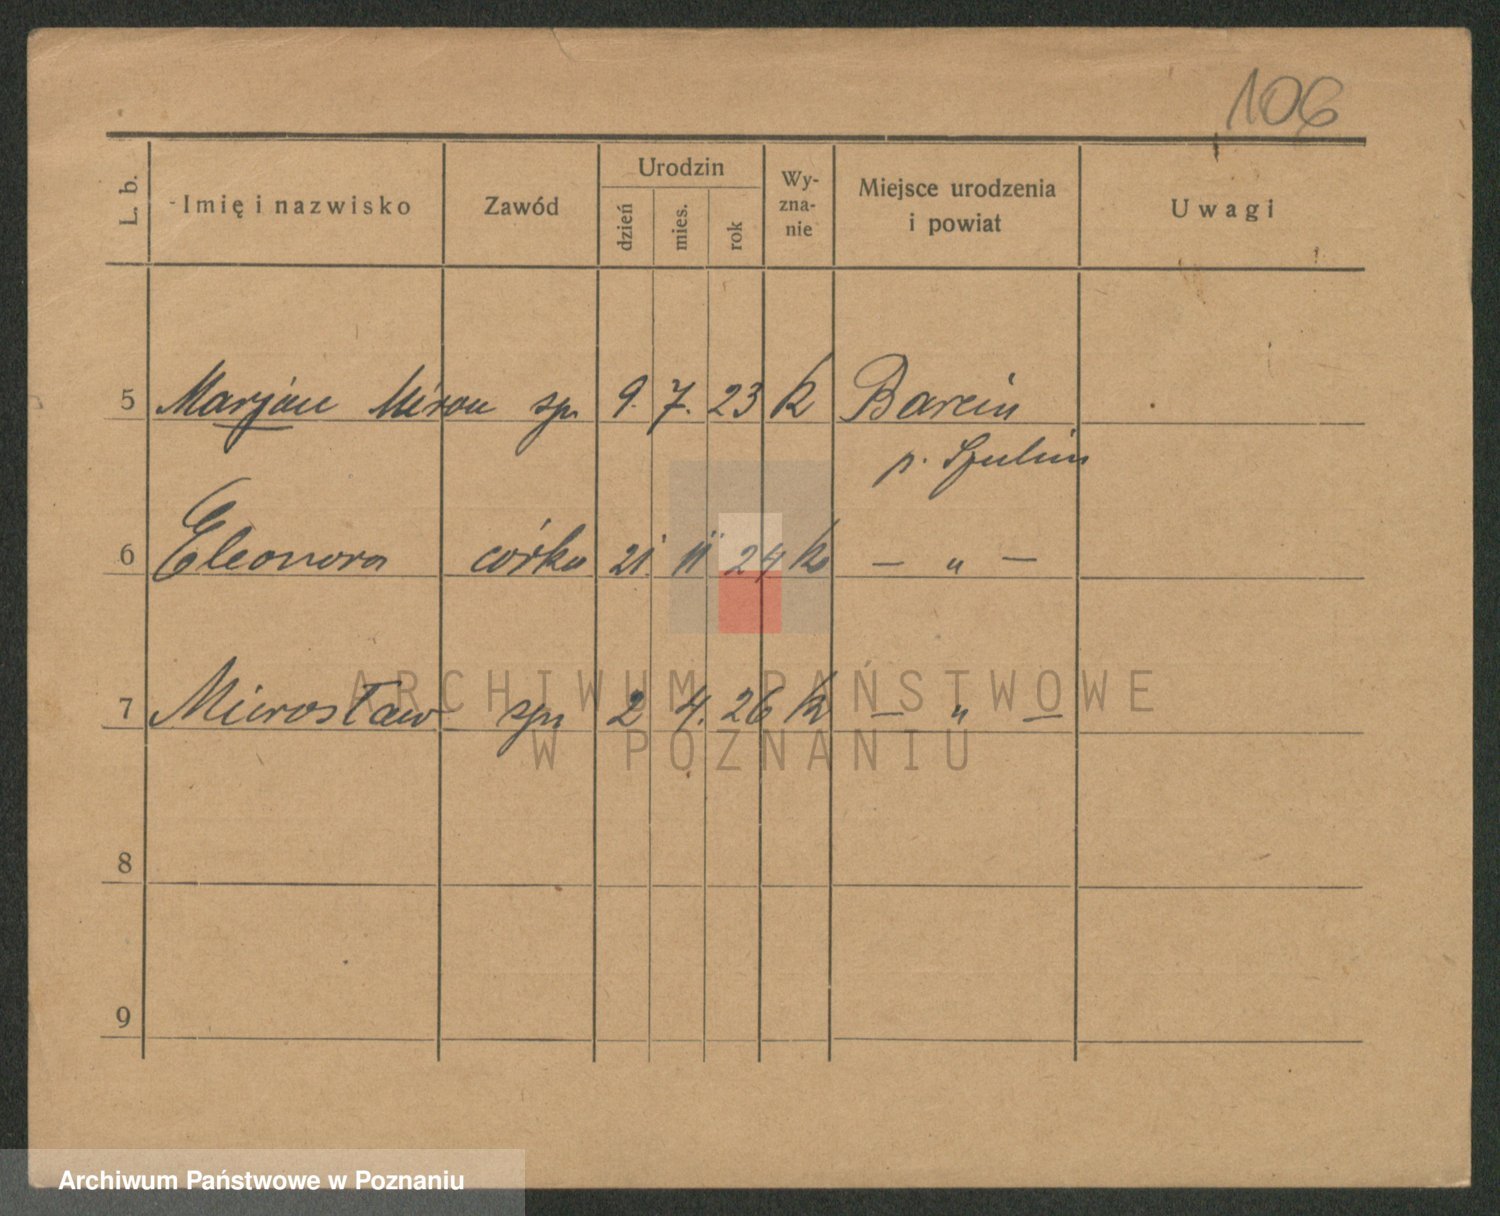 106
L. b. Imię i nazwisko Zawód Urodzin dzień mies. rok Wy-zna-nie Miejsce urodzenia i powiat Uwagi
5 Marjan Miron syn 9. 7. 23 K Barcin
p. Szubin
6 Eleonora córka 21. 11 24 k — " —
7 Mirosław syn 2 4. 26 k — " —
ARCHIWUM PAŃSTWOWE
W POZNANIU
8
9
Archiwum Państwowe w Poznaniu